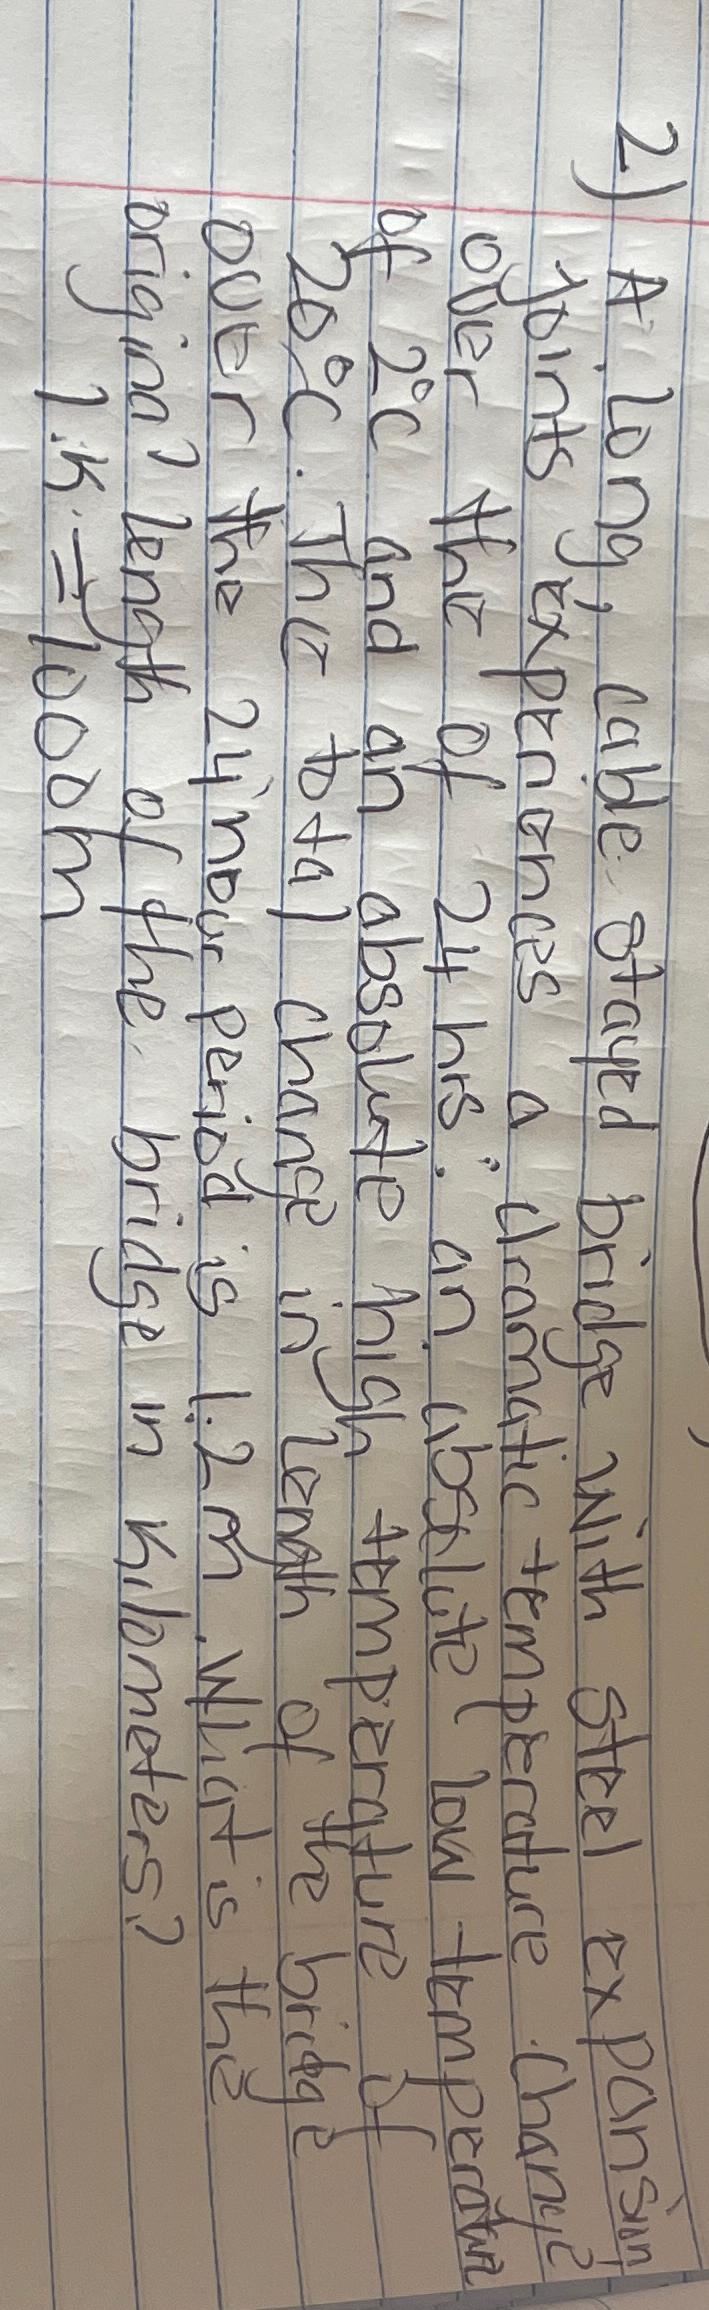 2) A long, cable stayed bridge with steel expansion
joints experiences a dramatic temperature change
over the of 24 hrs: an absolute low temperature
of 2°C and an absolute high temperature of
20°C. The total change in length of the bridge
over the 24 hour period is 1.2m. What is the
original length of the bridge in kilometers?
1 K = 1000m